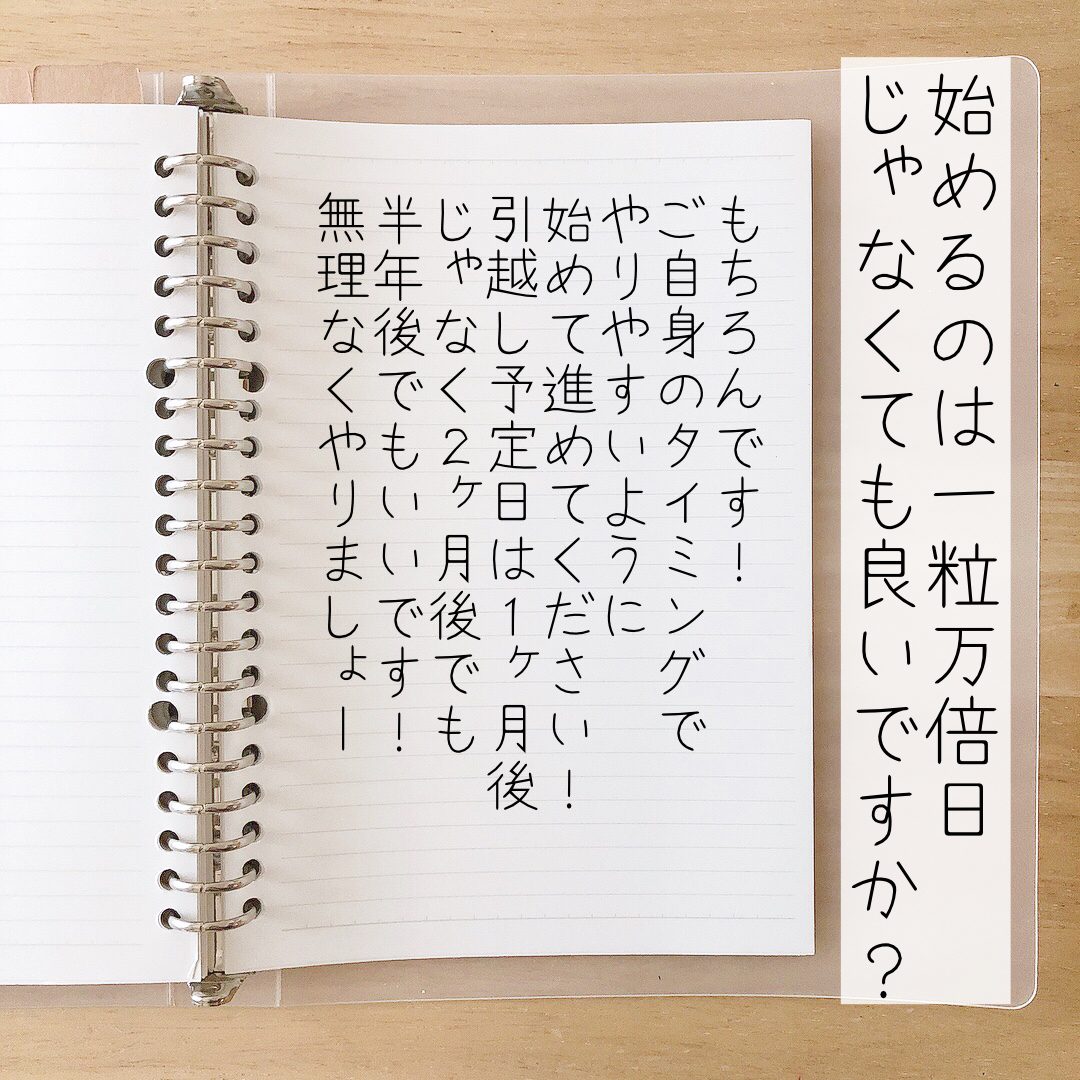 始めるのは一粒万倍日
じゃなくても良いですか？
もちろんです！
ご自身のタイミングで
やりやすいように
始めて進めてください！
引越し予定日は1ヶ月後
じゃなく2ヶ月後でも
半年後でもいいです！
無理なくやりましょー